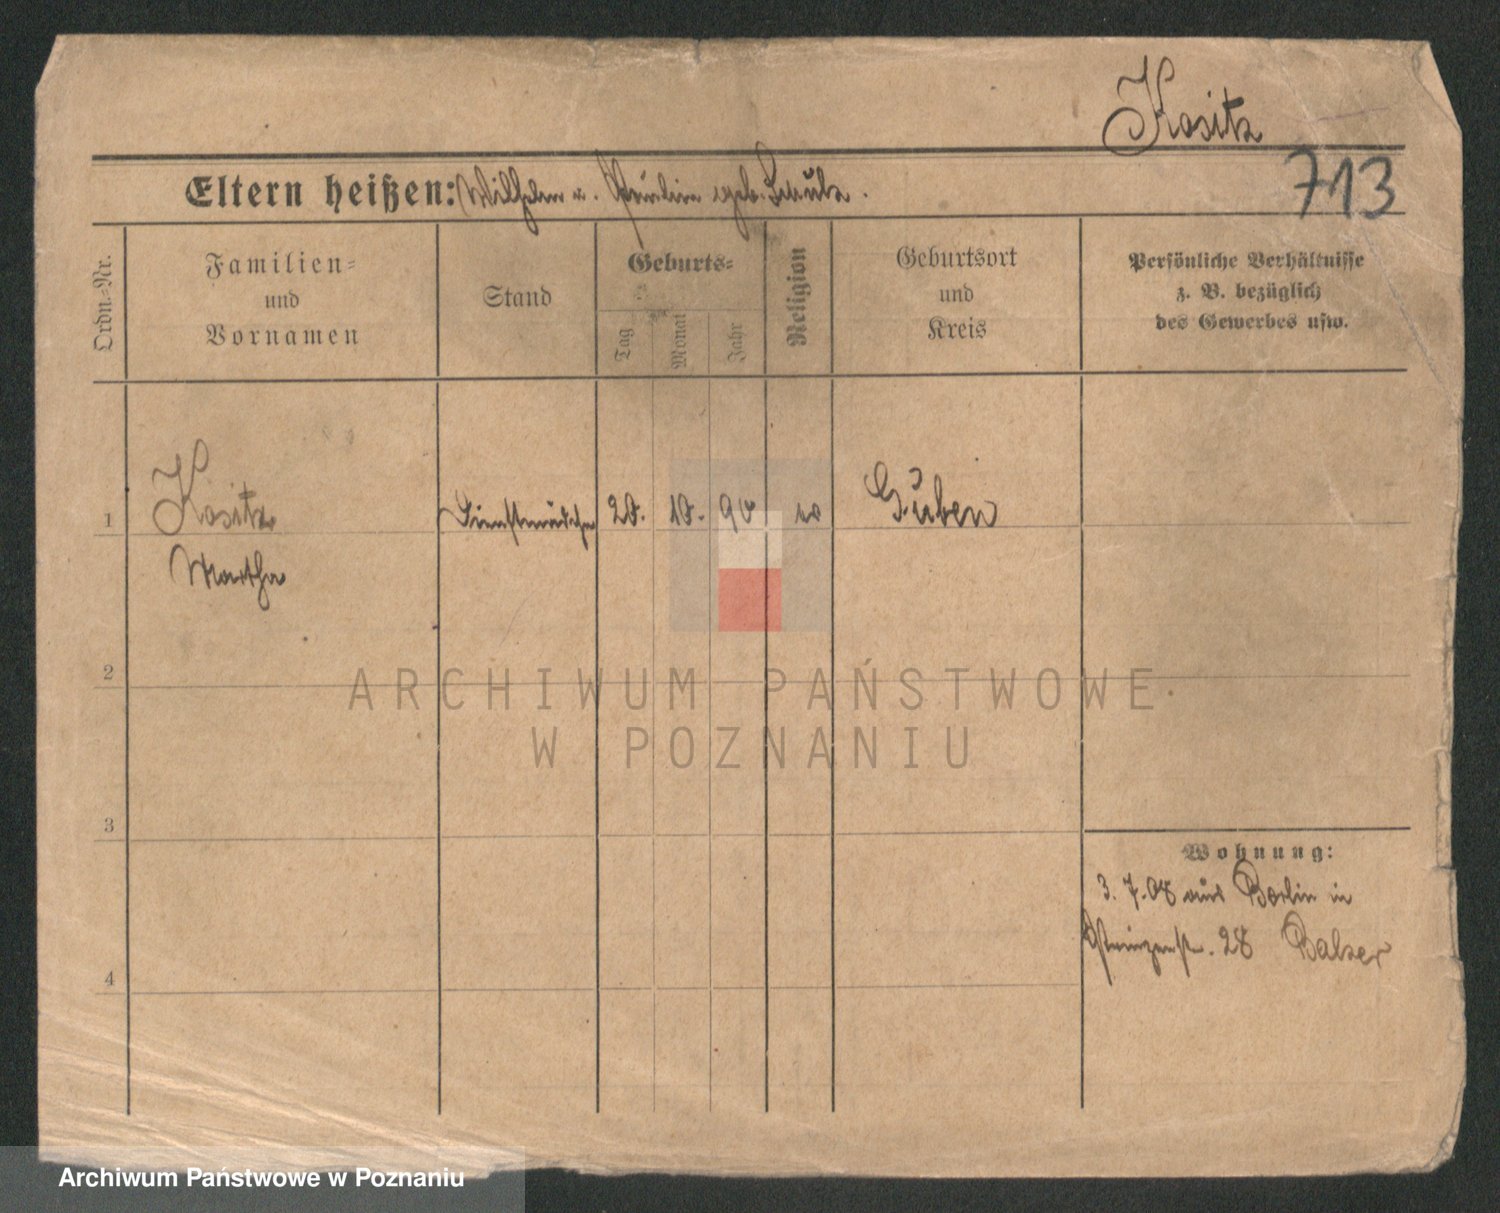 Kositz
713
Eltern heißen: Wilhelm u. Paulin geb. Schulz.
Ordn.-Nr.
Familien-
und
Vornamen
Stand
Geburts-
Tag
Monat
Jahr
Religion
Geburtsort
und
Kreis
Persönliche Verhältnisse
z. B. bezüglich
des Gewerbes usw.
1
Kositz
Dienstmädchen
20. 10. 90
Guben
Martha
2
ARCHIWUM PAŃSTWOWE
W POZNANIU
3
Wohnung:
3. 7. 08 aus Berlin in
28 Balzer
4
Archiwum Państwowe w Poznaniu